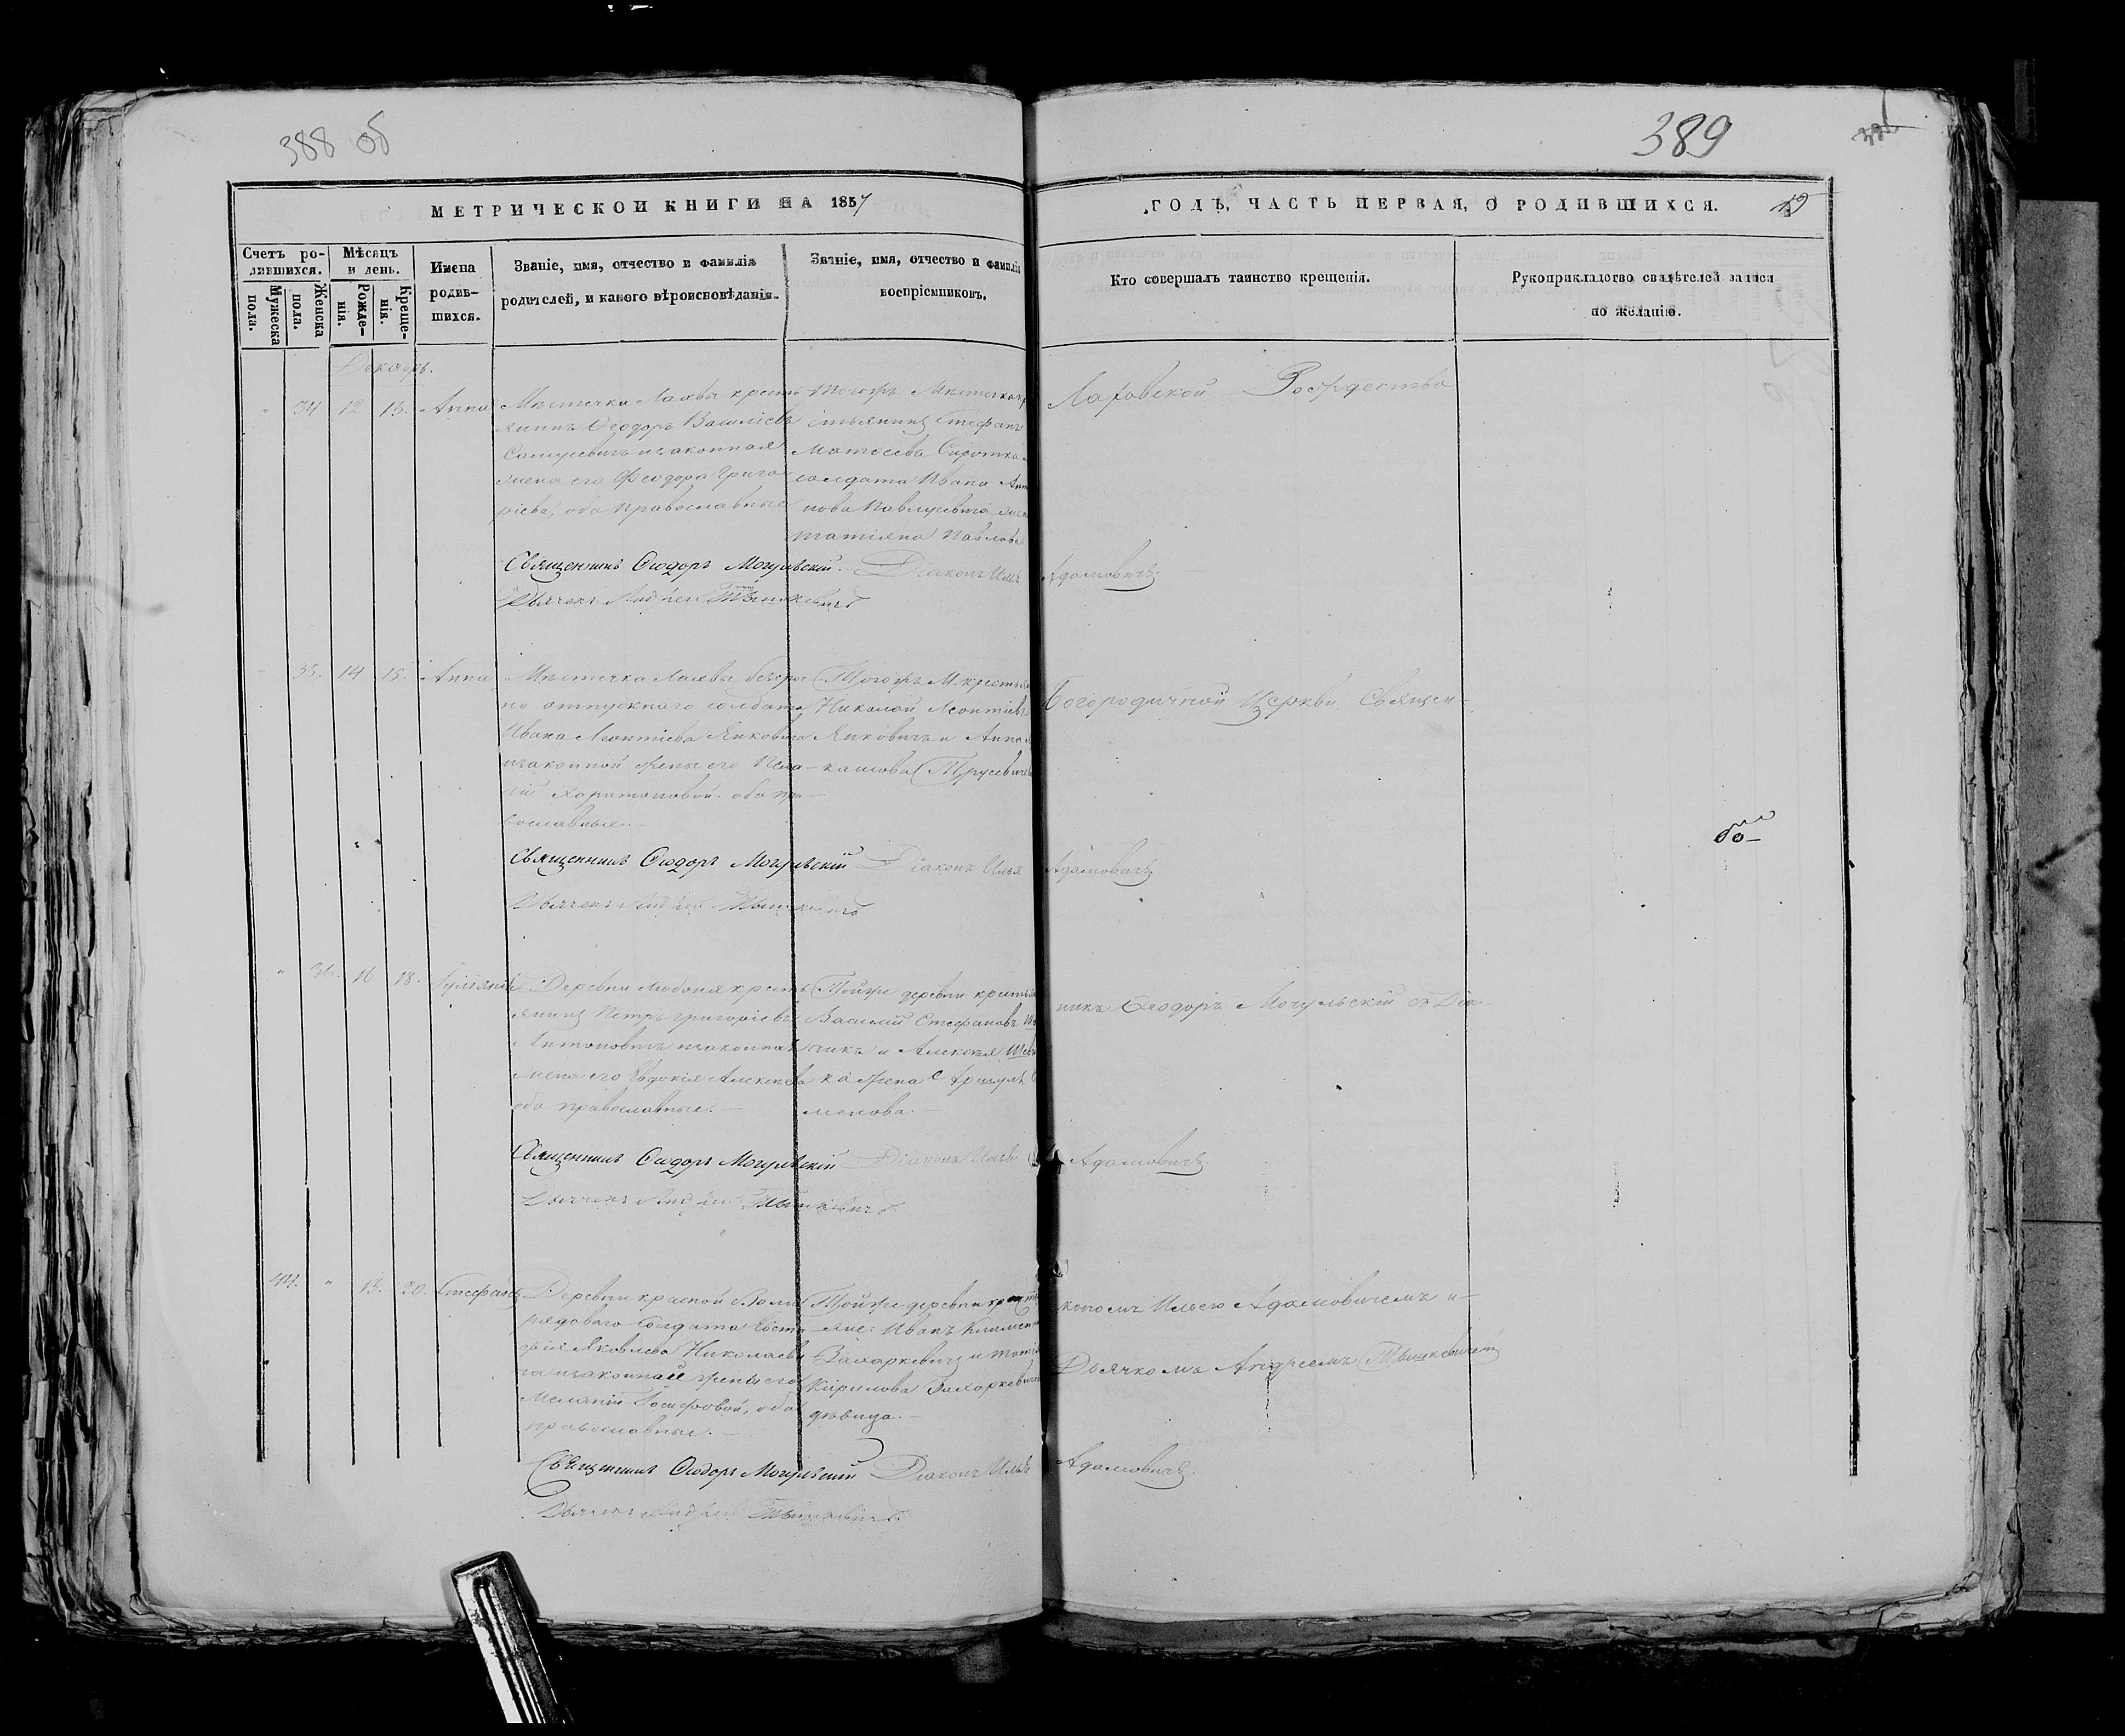 388 об
389
МЕТРИЧЕСКОЙ КНИГИ НА 1857
ГОДЪ, ЧАСТЬ ПЕРВАЯ, О РОДИВШИХСЯ.
19
Счетъ родившихся.
Мужеска пола.
Женска пола.
Мѣсяцъ и день.
Рожденія.
Крещенія.
Имена родившихся.
Званіе, имя, отчество и фамилія
родителей, и какого вѣроисповѣданія.
Званіе, имя, отчество и фамилія
воспріемниковъ.
Кто совершалъ таинство крещенія.
Рукоприкладство свидѣтелей записи
по желанію.
Декабрь.
" 34 12 13. Анна
Мѣстечка Лахвы кресть
янинъ Ѳеодоръ Василіевъ
изаконная
жена его Феодора Григо
ріева, оба православные
Тогожъ Мѣстечка кр
стьянинъ Стефанъ
Матѳеева
солдата Ивана Ант
нова Павлусевича жена
Татіяна Павлова
Лаховской Рождество
Священникъ Ѳеодоръ Мочульскій Діаконъ Илья Адамовичъ
Дьячекъ Андрей Тышкевичъ
35. 14 15. Анна
Мѣстечка Лахвы безсро
но отпускнаго солдата
Ивана Леонтіева Янковича
изаконной жены его Пела
гіи Харитоновой оба пра
вославные.
Тогожъ М. крестья
Николай Леонтіевъ
Янковичъ и Анна
Трусевичъ
Богородичной Церкви Священ-
Священникъ Ѳеодоръ Мочульскій Діаконъ Илья Адамовичъ
Дьячекъ Андрей Тышкевичъ
" 36. 16 18. Іуліянія
Деревни Любоня кресть
янинъ Петръ Григоріевъ
Антоновичъ изаконная
жена его Евдокія Алексѣева
оба православные.
Тойже деревни крестья
Василій Стефановъ
и Алексѣя
жена
менова
никъ Ѳеодоръ Мочульскій съ Діа-
Священникъ Ѳеодоръ Мочульскій Діаконъ Илья Адамовичъ
Дьячекъ Андрей Тышкевичъ
44. " 13. 20. Стефанъ
Деревни красной Воли
рядоваго Солдата Евста
фія Яковлева Николаеви
ча изаконная жены его
Меланіи Іосифовой, оба
православные.
Тойже деревни крестья
яне: Иванъ Климен
Захаркевичъ и Татія
Кирилова Захаркевичъ
дѣвица.
кономъ Ильею Адамовичемъ и
Дьячкомъ Андреемъ Тышкевичемъ
Священникъ Ѳеодоръ Мочульскій Діаконъ Илья Адамовичъ.
Дьячекъ Андрей Тышкевичъ